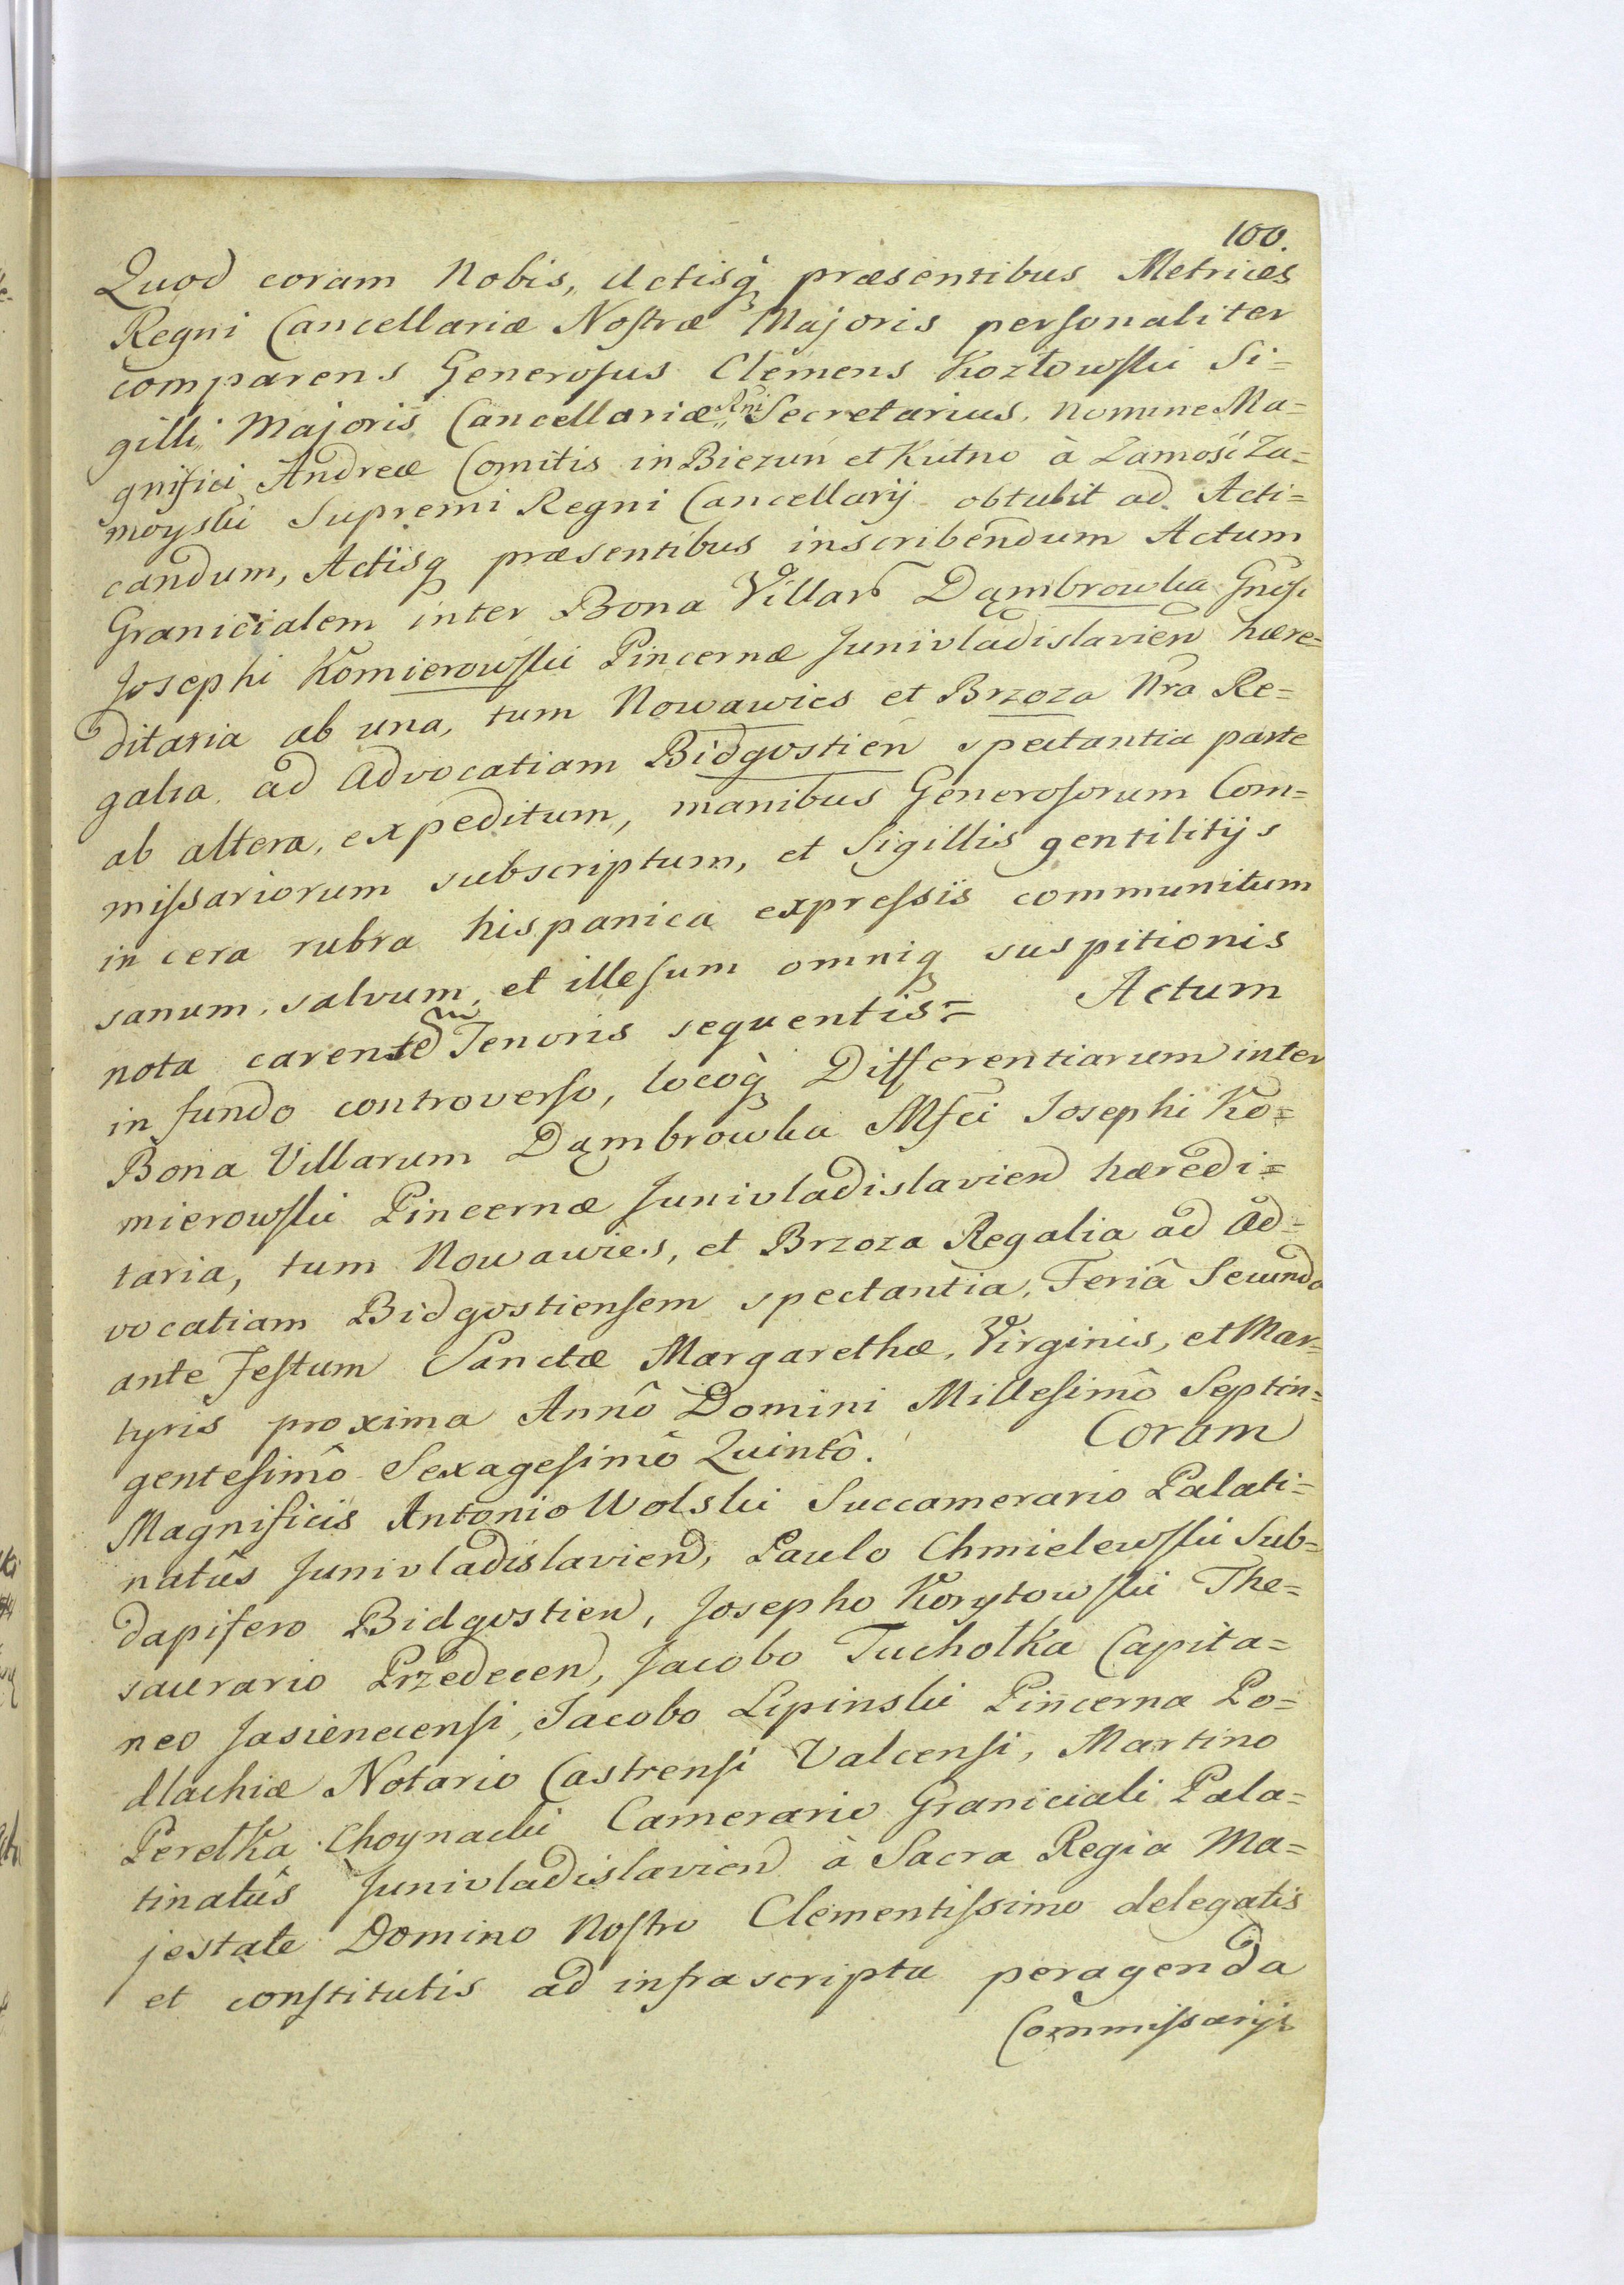 100.
Quod coram Nobis, Actisq præsentibus Metrices
Regni Cancellariæ Nostræ Majoris personaliter
comparens Generosus Clemens Kozłowski Si=
gilli Majoris Cancellariæ Rni Secretarius, nomine Ma=
gnifici Andreæ Comitis in Biezuń et Kutno à Zamość Za=
moyski Supremi Regni Cancellarij obtulit ad Acti=
candum, Actisq præsentibus inscribendum Actum
Granicialem inter Bona Villar Dąmbrowka Gnosi
Josephi Komierowski Pincernæ Junivladislavien hære=
ditaria ab una, tum Nowawies et Brzoza Nra Re=
galia ad Advocatiam Bidgostien spectantia parte
ab altera, expeditum, manibus Generosorum Com=
missariorum subscriptum, et Sigillis gentilitijs
in cera rubra hispanica expressis communitum
sanum, salvum, et illesum omniq suspitionis
nota carente Tenoris sequentis= Actum
in fundo controverso, locoq Differentiarum inter
Bona Villarum Dąmbrowka Mfci Josephi Ko=
mierowski Pincernæ Junivladislavien hæredi=
taria, tum Nowawies, et Brzoza Regalia ad Ad=
vocatiam Bidgostiensem spectantia, Feriâ Secunda
ante Festum Sanctæ Margarethæ, Virginis, et Mar=
tyris proxima Annô Domini Millesimô Septin=
gentesimô Sexagesimô Quintô. Coram
Magnificis Antonio Wolski Succamerario Palati=
natûs Junivladislavien, Paulo Chmielewski Sub=
dapifero Bidgostien, Josepho Korytowski The=
saurario Przedecen, Jacobo Tuchołka Capita=
neo Jasienecensi, Jacobo Lipinski Pincerna Po=
dlachiæ Notario Castrensi Valcensi, Martino
Peretka Choynacki Camerario Graniciali Pala=
tinatûs Junivladislavien à Sacra Regia Ma=
jestate Domino Nostro Clementissimo delegatis
et constitutis ad infrascripta peragenda
Commissarijs